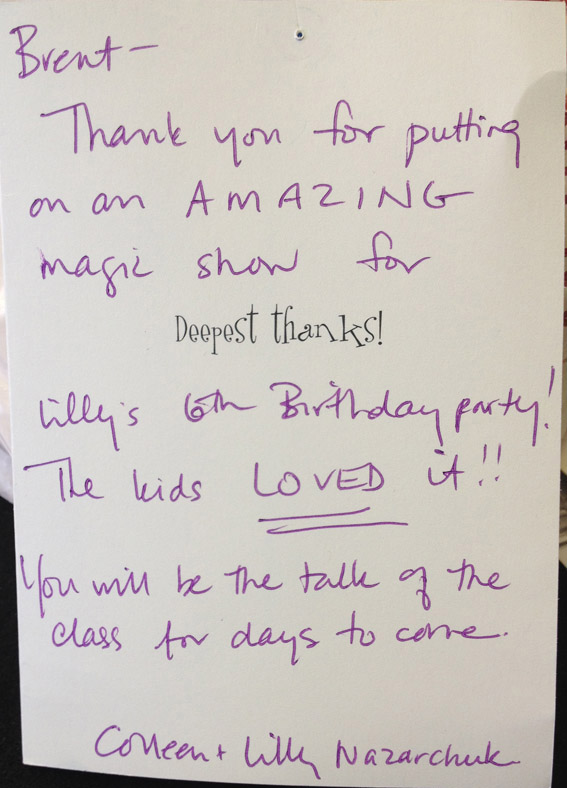 Brent-
Thank you for putting
on an AMAZING
magic show for
Deepest thanks!
Lilly's 6th Birthday party!
The kids LOVED it!!
You will be the talk of the
class for days to come.
Colleen + Lilly Nazarchuk